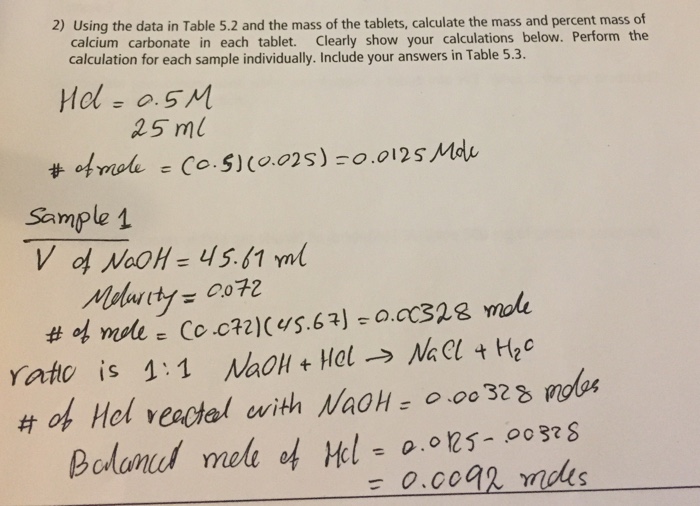 2) Using the data in Table 5.2 and the mass of the tablets, calculate the mass and percent mass of
calcium carbonate in each tablet. Clearly show your calculations below. Perform the
calculation for each sample individually. Include your answers in Table 5.3.
Hcl = 0.5 M
25 ml
# of mole = (0.5)(0.025) = 0.0125 Mole
Sample 1
V of NaOH = 45.67 ml
Molarity = 0.072
# of mole = (0.072)(45.67) = 0.00328 mole
ratio is 1:1 NaOH + Hcl → NaCl + H₂O
# of Hcl reacted with NaOH = 0.00328 moles
Balanced mole of Hcl = 0.0125 - .00328
= 0.0092 moles